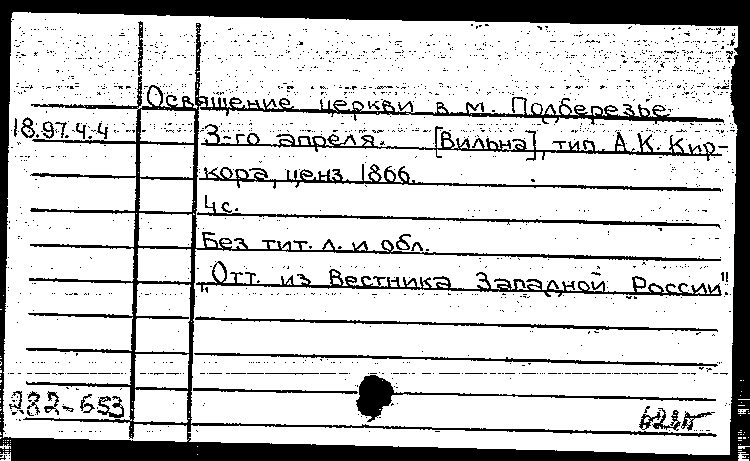 Освящение церкви в м. Подберезье
18.97.4.4
3-го апреля. [Вильна], тип. А.К. Кир-
кора, ценз. 1866.
4с.
Без тит. л. и обл.
„Отт. из Вестника Западной России".
282-653